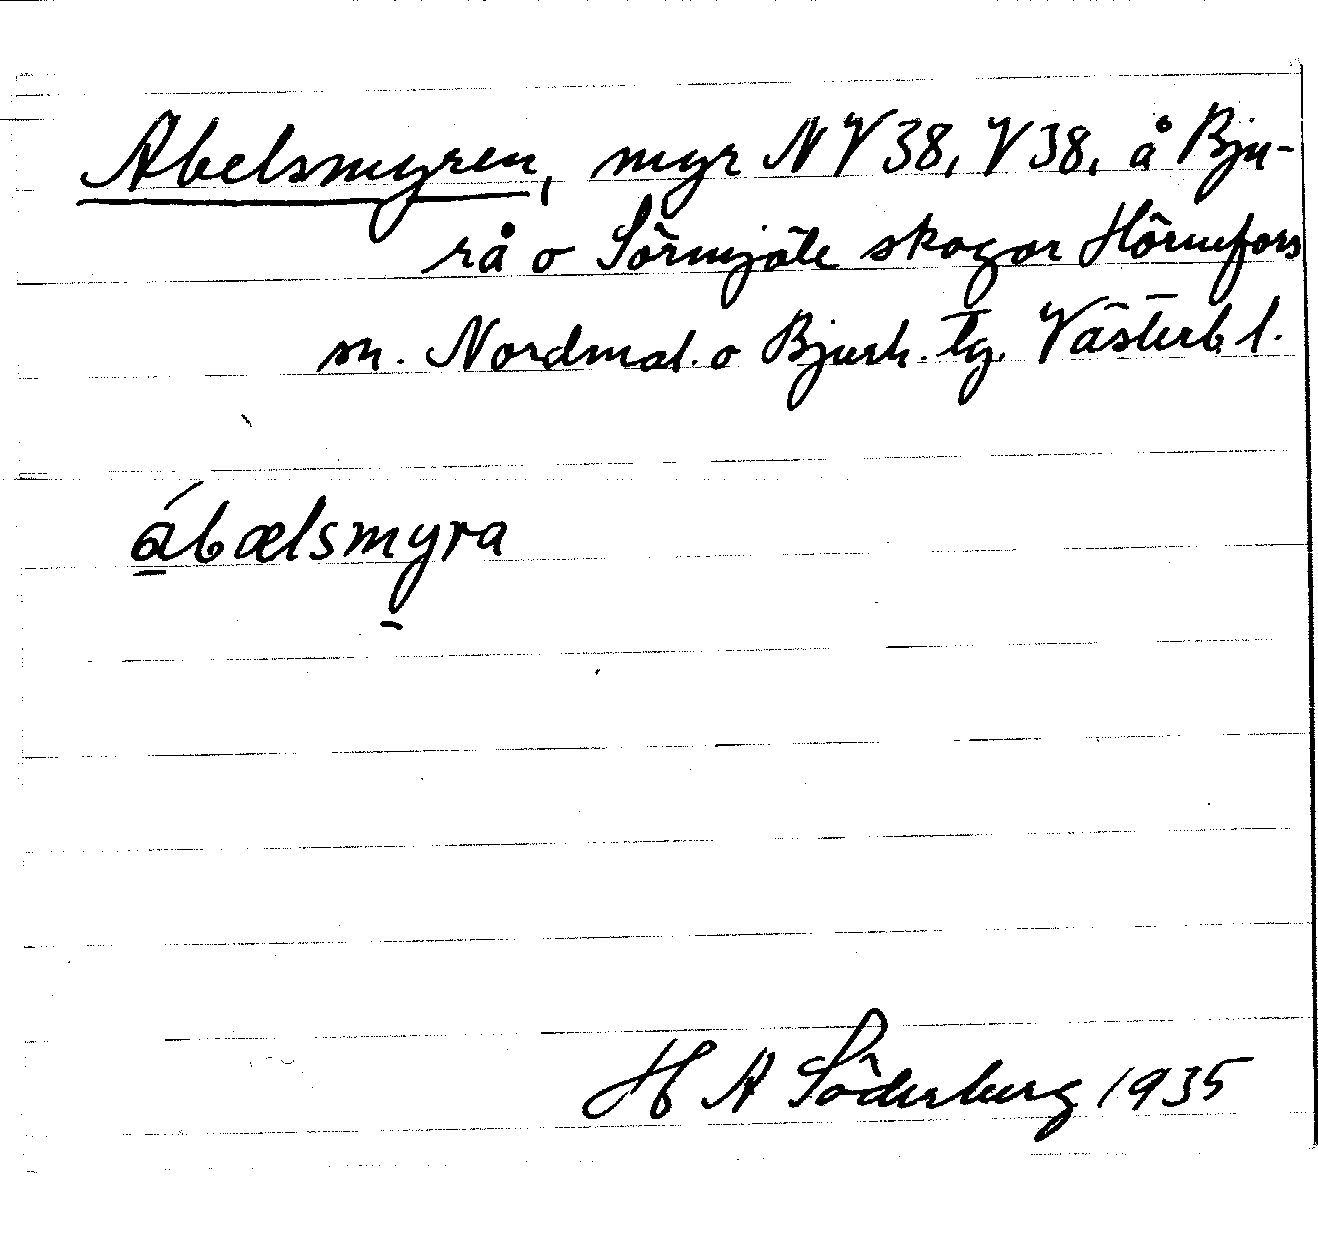 Abelsmyren, myr NV 38, V 38, å Bju-
rå o Sörmjöle skogar Hörnefors
sn. Nordmal. o Bjurh. tg. Västerb l.
ábælsmyra
H A Söderberg 1935